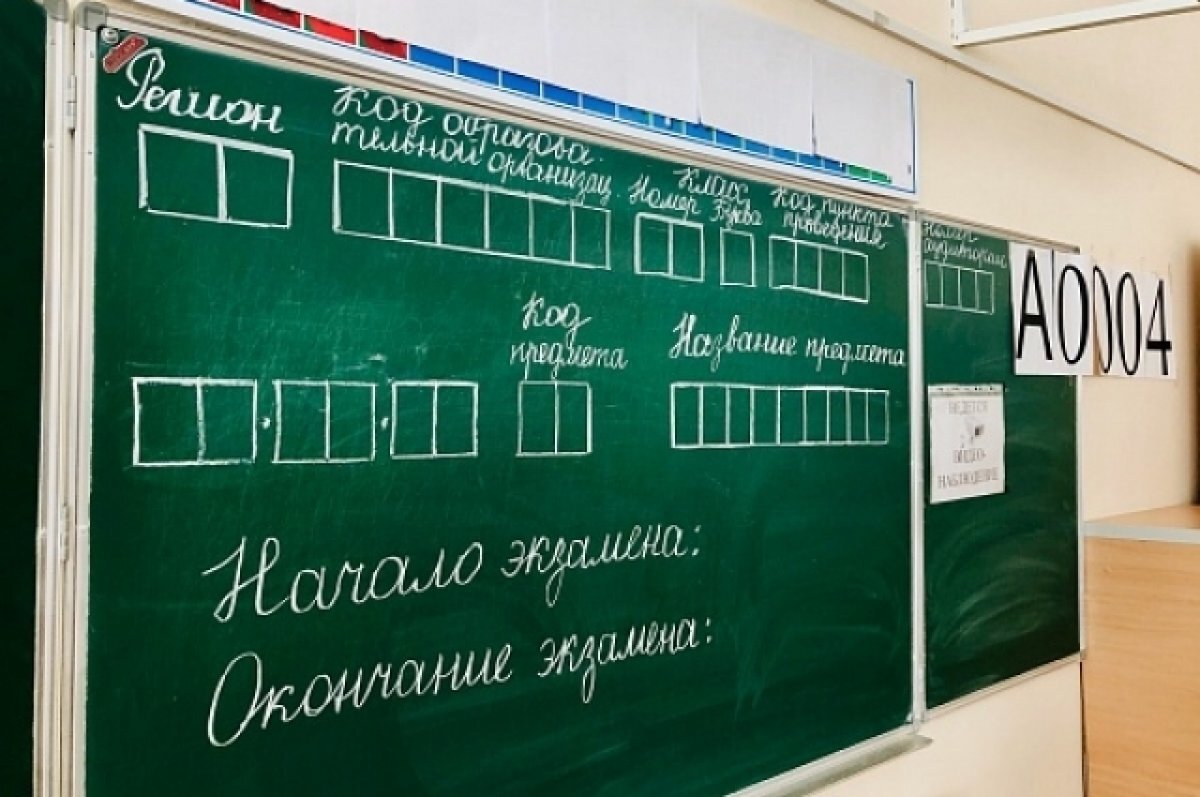 Регион
Код образова-
тельной организац.
Класс
Номер Буква
Код пункта
проведения
Номер
аудитории
А0004
Код
предмета
Название предмета
ВЕДЕТСЯ
ВИДЕО-
НАБЛЮДЕНИЕ
Начало экзамена:
Окончание экзамена: